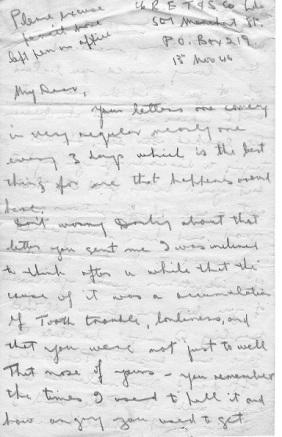 Please excuse
pencil have
left pen in office
% R. E. T. & S. Co Ltd.
501 Market St.
P.O. Box 219.
13th Nov 46
My Dear,
Your letters are coming
in very regular nearly one
every 3 days which is the best
thing for me that happens round
here.
Don't worry Darling about that
letter you sent me I was inclined
to think after a while that the
cause of it was a accumulation
of Tooth trouble, loneliness, and
that you were not just to well
That nose of yours - you remember
the times I used to pull it and
how angry you used to get